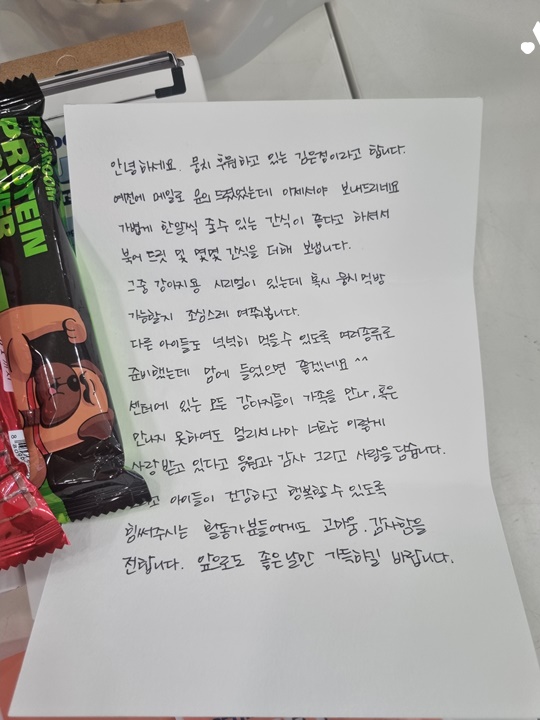 PET
PROTEIN
안녕하세요. 뭉치 후원하고 있는 김은정이라고 합니다.
예전에 메일로 문의 드렸었는데 이제서야 보내드리네요
가볍게 한알씩 줄수 있는 간식이 좋다고 하셔서
북어 트릿 및 몇몇 간식을 더해 보냅니다.
그중 강아지용 시리얼이 있는데 혹시 뭉치 먹방
가능할지 조심스레 여쭤봅니다.
다른 아이들도 넉넉히 먹을수 있도록 여러종류로
준비했는데 맘에 들었으면 좋겠네요 ^^
센터에 있는 모든 강아지들이 가족을 만나, 혹은
만나지 못하여도 멀리서나마 너희는 이렇게
사랑 받고 있다고 응원과 감사 그리고 사랑을 담습니다.
아이들이 건강하고 행복할 수 있도록
힘써주시는 활동가분들에게도 고마움, 감사함을
전합니다. 앞으로도 좋은날만 가득하길 바랍니다.